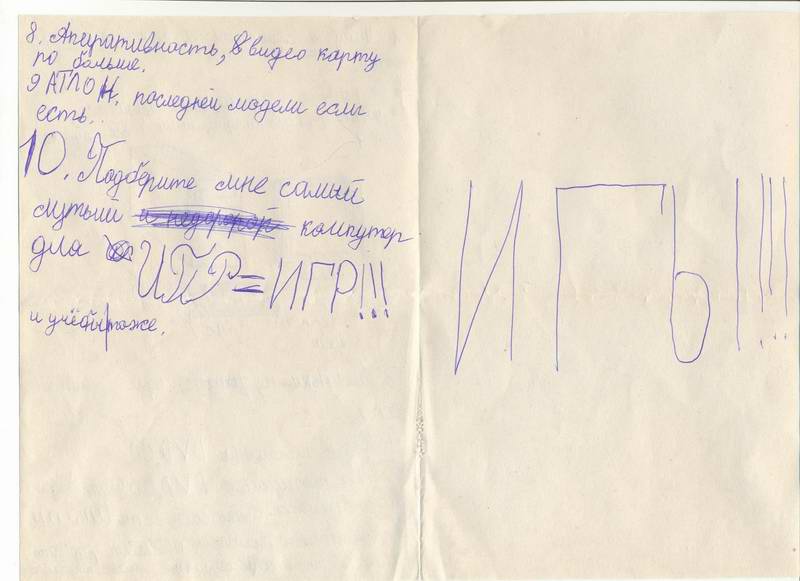 8. Аперативность, в видео карту
по больше.
9 АТЛОН, последней модели если
есть..
10. Подберите мне самый
мутый и недорогой компутер
для ИГР=ИГР!!!
и учёбы тоже.
ИГЫ!!!!